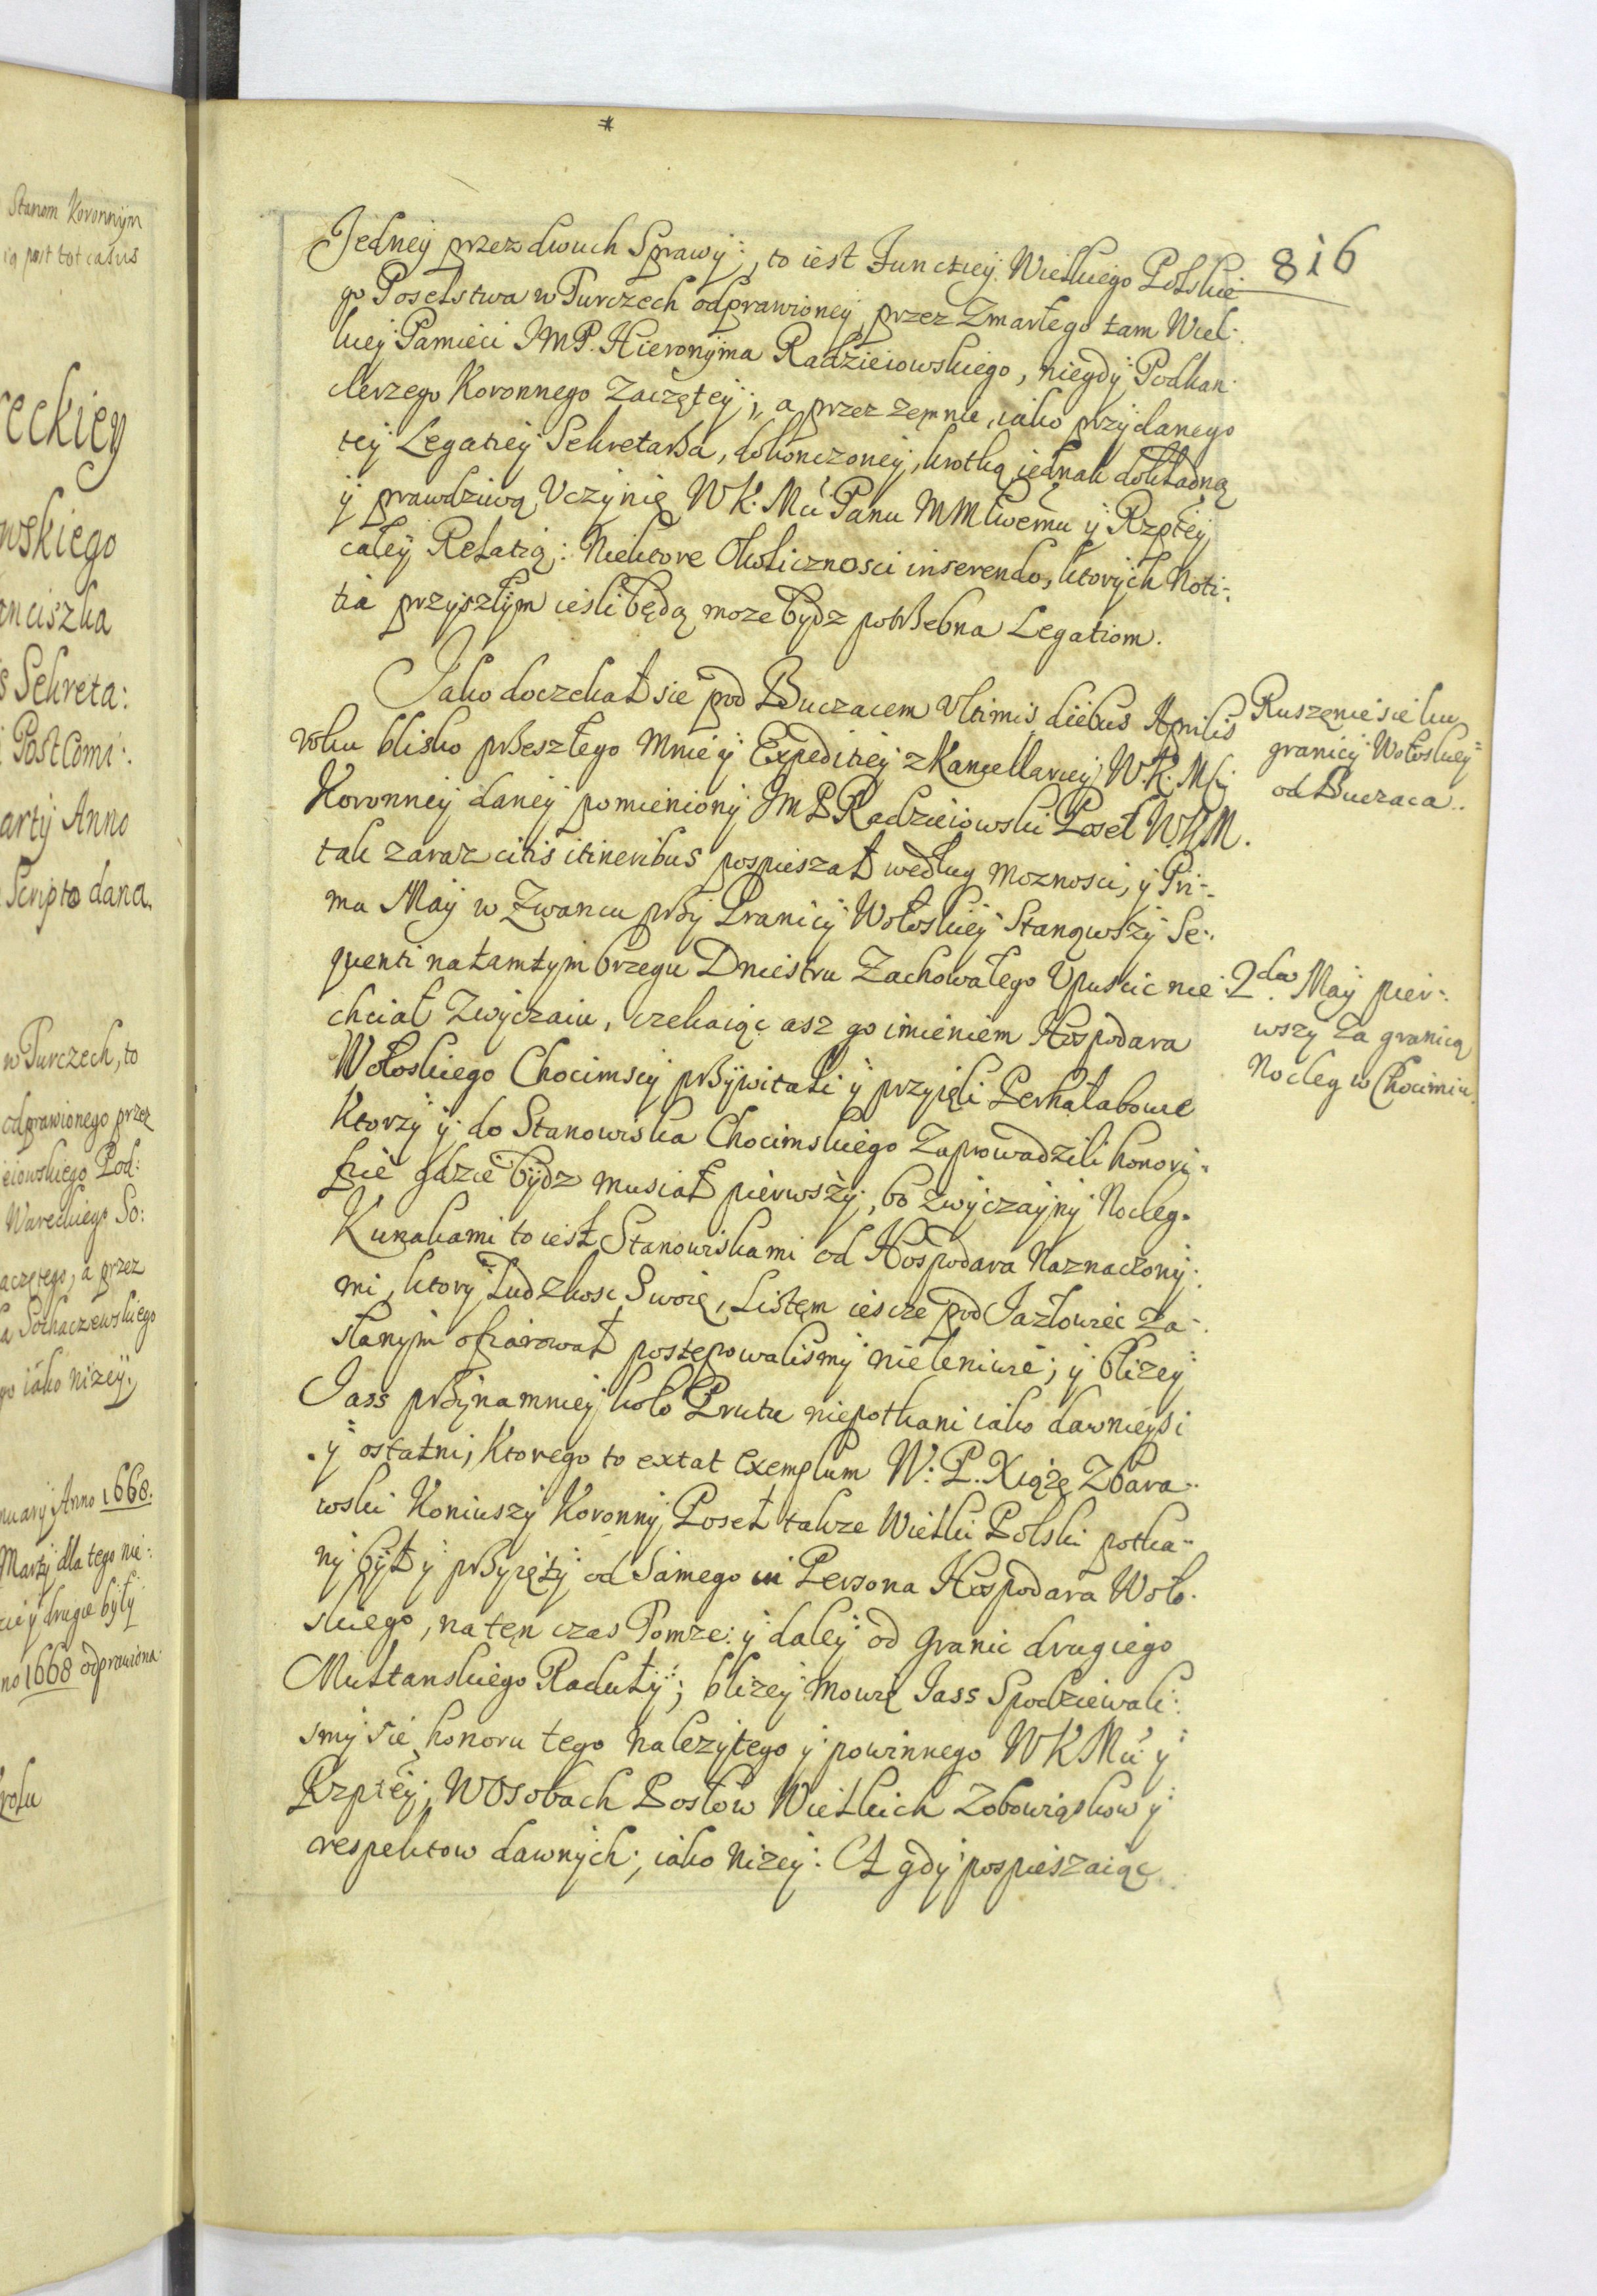 Stanom Koronnym
ią post tot casus
reckiey
wskiego
anciszka
s Sekreta:
i Post Comi:
artij Anno
Scripto dana.
w Turczech, to
odprawionego przez
ieiowskiego Pod:
Wareckiego So:
aczętego, a przez
a Sochaczewskiego
go iako niżey.
nuarij Anno 1668.
Martij dla tego nie:
ciey drugie były
no 1668 odprawiona
rolu
816
Jedney przez dwuch Sprawy; to iest Funckiey Wielkiego Polskie
go Poselstwa w Turczech odprawioney przez Zmarłego tam Wiel:
kiey Pamięci JMP. Hieronyma Radzieiowskiego, niegdy Podkan
clerzego Koronnego Zaczętey; a przez zemnie, iako przydanego
tey Legatiey Sekretarza, dokończoney, krotką iednak dokładną
y prawdziwą Uczynię WK. Mci Panu MMłwemu y Rzptey
całey Relatią: Niektore Okolicznosci inserendo, ktorych Noti:
tia przyszłym iesli będą może bydz potrzebna Legatiom.
Jako doczekał sie pod Buczaczem Ultimis diebus Aprilis
roku blisko przeszłego mnie y Expeditiey z Kancellariey W.K.Mci
Koronney daney pomieniony JMP Radzieiowski Poseł WKM.
tak zaraz citis itineribus pospieszał według moznosci, y Pri:
ma Maij w Zwancu przy Granicy Wołoskiey Stanąwszy Se:
quenti na tamtym brzegu Dniestru Zachowałego Upuscic nie
chciał Zwyczaiu, czekaiąc asz go imieniem Hospodara
Wołoskiego Chocimscy przywitali y przyięli Perkałabowie
Ktorzy y do Stanowiska Chocimskiego Zaprowadzili honori:
fice gdzie bydz musiał pierwszy, bo zwyczayny Nocleg.
Kunakami to iest Stanowiskami od Hospodara Naznaczony:
mi, ktory Ludzkosc Swoię, Listem ieszcze pod Jazłowiec Za:
słanym ofiarował postępowalismy nieleniwie; y bliżey
Jass przynamniey koło Prutu niepotkani iako dawnieysi
y ostatni, Ktorego to extat Exemplum W. P. Xiążę Zbara:
wski Koniuszy Koronny Poseł takze Wielki Polski potka:
ny był y przyięty od Samego in Persona Hospodara Woło:
skiego, na ten czas Tomze: y daley od Granic drugiego
Multanskiego Raduły; bliżey mowię Jass Spodziewali:
smy sie honoru tego należytego y powinnego WKMci y
Rzptey, W Osobach Posłow Wielkich Zobowiązkow y
respektow dawnych, iako niżey: A gdy pospieszaiąc
Ruszenie sie ku
granicy Wołoskiey
od Buczaca..
2da Maij pier:
wszy Za granicą
Nocleg w Chocimiu.